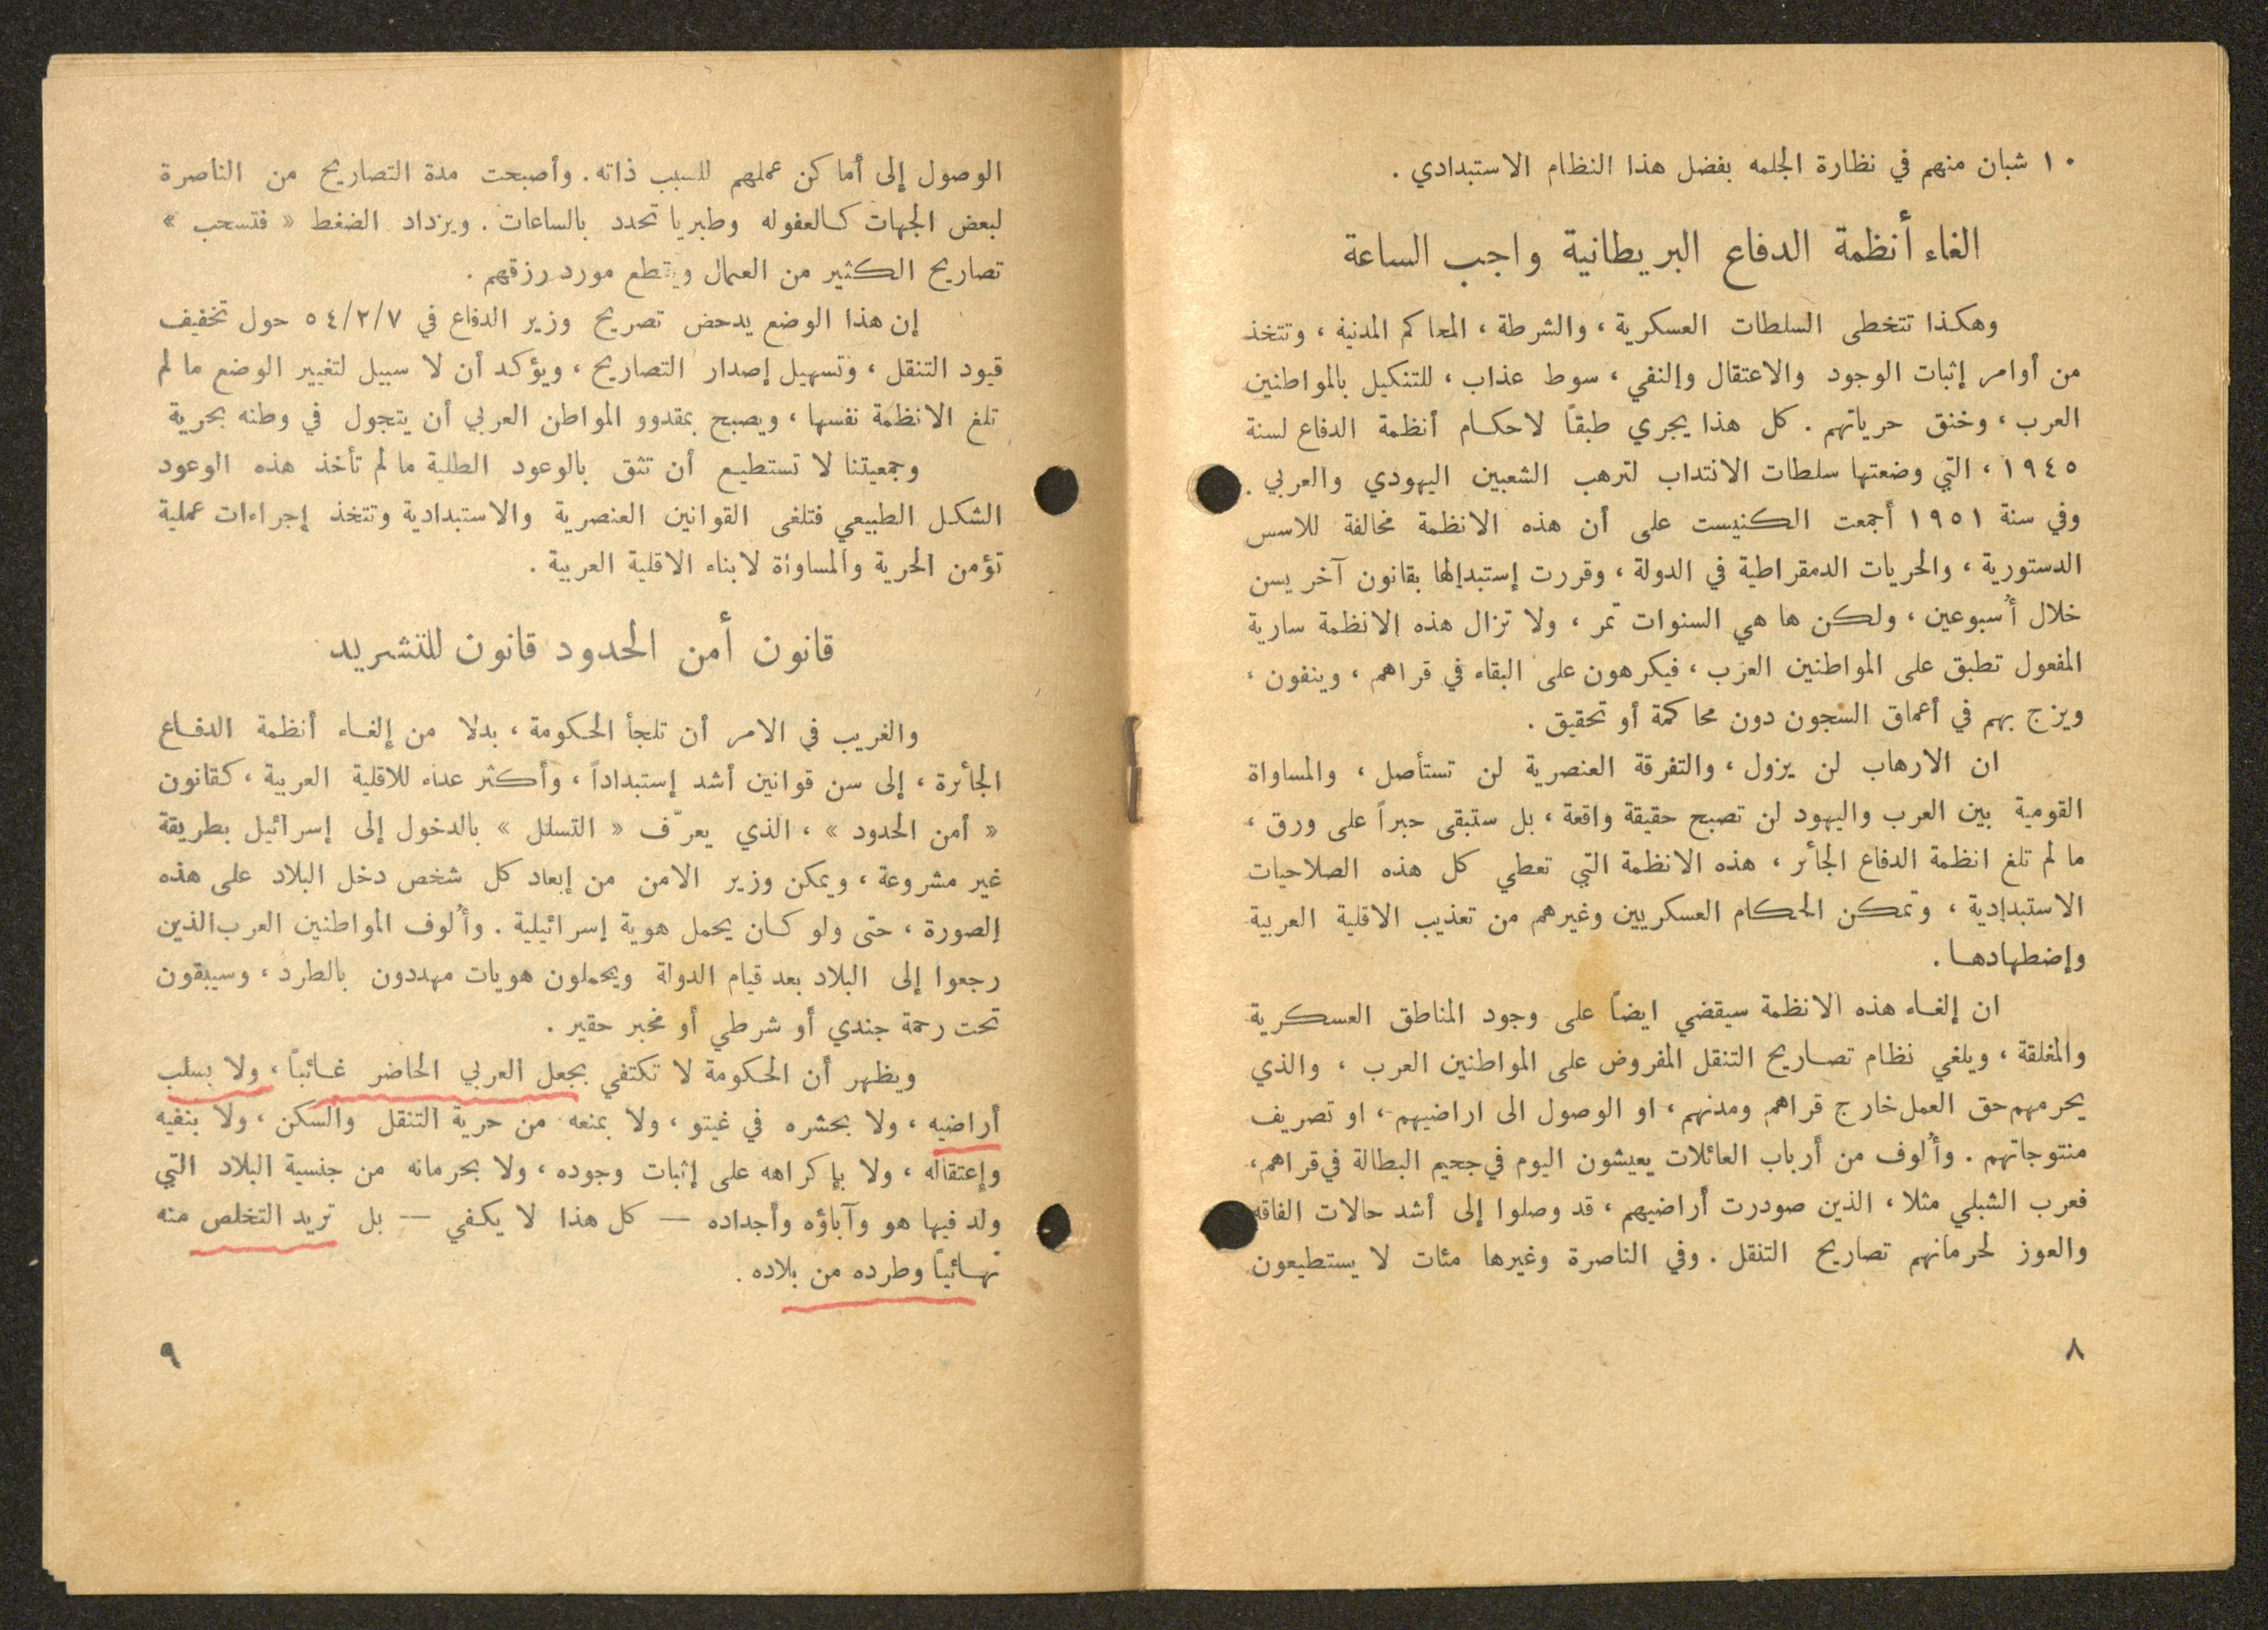 ١٠ شبان منهم في نظارة الجلمه بفضل هذا النظام الاستبدادي .
الغاء أنظمة الدفاع البريطانية واجب الساعة
وهكذا تتخطى السلطات العسكرية ، والشرطة ، المحاكم المدنية ، وتتخذ
من أوامر إثبات الوجود والاعتقال والنفي ، سوط عذاب ، للتنكيل بالمواطنين
العرب ، وخنق حرياتهم . كل هذا يجري طبقاً لاحكام أنظمة الدفاع لسنة
١٩٤٥ ، التي وضعتها سلطات الانتداب لترهب الشعبين اليهودي والعربي .
وفي سنة ١٩٥١ أجمعت الكنيست على أن هذه الانظمة مخالفة للاسس
الدستورية ، والحريات الدمقراطية في الدولة ، وقررت إستبدالها بقانون آخر يسن
خلال أُسبوعين ، ولكن ها هي السنوات تمر ، ولا تزال هذه الانظمة سارية
المفعول تطبق على المواطنين العرب ، فيكرهون على البقاء في قراهم ، وينفون ،
ويزج بهم في أعماق السجون دون محاكمة أو تحقيق .
ان الارهاب لن يزول ، والتفرقة العنصرية لن تستأصل ، والمساواة
القومية بين العرب واليهود لن تصبح حقيقة واقعة ، بل ستبقى حبراً على ورق ،
ما لم تلغ انظمة الدفاع الجائر ، هذه الانظمة التي تعطي كل هذه الصلاحيات
الاستبدادية ، وتمكن الحكام العسكريين وغيرهم من تعذيب الاقلية العربية
وإضطهادها .
ان إلغاء هذه الانظمة سيقضي ايضاً على وجود المناطق العسكرية
والمغلقة ، ويلغي نظام تصاريح التنقل المفروض على المواطنين العرب ، والذي
يحرمهم حق العمل خارج قراهم ومدنهم ، او الوصول الى اراضيهم ، او تصريف
منتوجاتهم . وأُلوف من أرباب العائلات يعيشون اليوم في جحيم البطالة في قراهم ،
فعرب الشبلي مثلا ، الذين صودرت أراضيهم ، قد وصلوا إلى أشد حالات الفاقه
والعوز لحرمانهم تصاريح التنقل . وفي الناصرة وغيرها مئات لا يستطيعون
٨
الوصول إلى أماكن عملهم للسبب ذاته . وأصبحت مدة التصاريح من الناصرة
لبعض الجهات كالعفوله وطبريا تحدد بالساعات . ويزداد الضغط « فتسحب »
تصاريح الكثير من العمال ويقطع مورد رزقهم .
إن هذا الوضع يدحض تصريح وزير الدفاع في ٥٤/٢/٧ حول تخفيف
قيود التنقل ، وتسهيل إصدار التصاريح ، ويؤكد أن لا سبيل لتغيير الوضع ما لم
تلغ الانظمة نفسها ، ويصبح بمقدوو المواطن العربي أن يتجول في وطنه بحرية
وجمعيتنا لا تستطيع أن تثق بالوعود الطلية ما لم تأخذ هذه الوعود
الشكل الطبيعي فتلغى القوانين العنصرية والاستبدادية وتتخذ إجراءات عملية
تؤمن الحرية والمساواة لابناء الاقلية العربية .
قانون أمن الحدود قانون للتشريد
والغريب في الامر أن تلجأ الحكومة ، بدلا من إلغاء أنظمة الدفاع
الجائرة ، إلى سن قوانين أشد إستبداداً ، وأكثر عداء للاقلية العربية ، كقانون
« أمن الحدود » ، الذي يعرّف « التسلل » بالدخول إلى إسرائيل بطريقة
غير مشروعة ، ويمكن وزير الامن من إبعاد كل شخص دخل البلاد على هذه
الصورة ، حتى ولو كان يحمل هوية إسرائيلية . وأُلوف المواطنين العرب الذين
رجعوا إلى البلاد بعد قيام الدولة ويحملون هويات مهددون بالطرد ، وسيبقون
تحت رحمة جندي أو شرطي أو مخبر حقير .
ويظهر أن الحكومة لا تكتفي بجعل العربي الحاضر غائباً ، ولا بسلب
أراضيه ، ولا بحشره في غيتو ، ولا بمنعه من حرية التنقل والسكن ، ولا بنفيه
وإعتقاله ، ولا بإكراهه على إثبات وجوده ، ولا بحرمانه من جنسية البلاد التي
ولد فيها هو وآباؤه وأجداده — كل هذا لا يكفي — بل تريد التخلص منه
نهائياً وطرده من بلاده .
٩